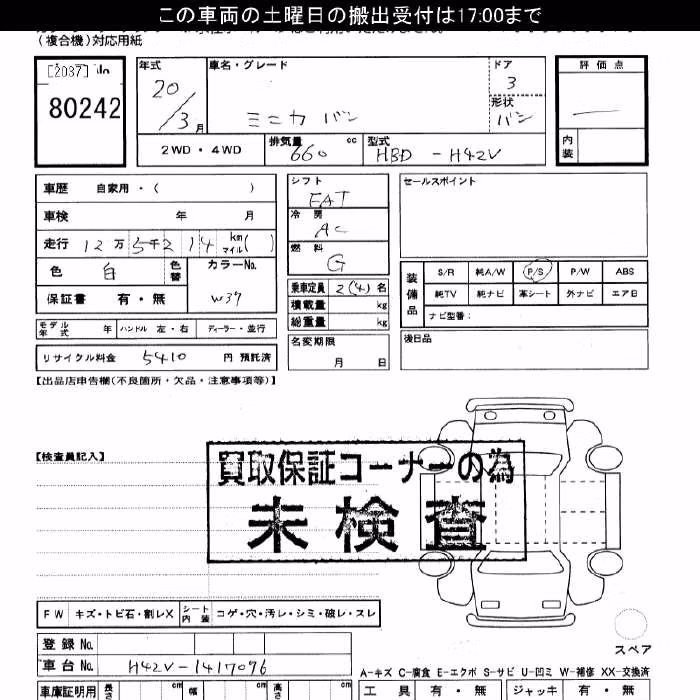 この車両の土曜日の搬出受付は17:00まで
(複合機)対応用紙
[2037] No
80242
年式 車名・グレード ドア 評価点
20/3月 ミニカ バン 3
形状 バン
2WD・4WD 排気量 660 cc 型式 HBD-H42V 内装
車歴 自家用・( )
車検 年 月
走行 12万5千214 km マイル( )
色 白 色替 カラーNo. W37
保証書 有・無
モデル年式 年 ハンドル 左・右 ディーラー・並行
リサイクル料金 5410 円 預託済
シフト FAT
冷房 AC
燃料 G
乗車定員 2(4)名
積載量 kg
総重量 kg
名変期限
月 日
セールスポイント
装備品 S/R 純A/W P/S P/W ABS
純TV 純ナビ 革シート 外ナビ エアB
ナビ型番:
後日品
【出品店申告欄(不良箇所・欠品・注意事項等)】
【検査員記入】
買取保証コーナーの為
未検査
FW キズ・トビ石・割レX シート内装 コゲ・穴・汚レ・シミ・破レ・スレ
登録No.
車台No. H42V-1417096
スペア
A-キズ C-腐食 E-エクボ S-サビ U-凹ミ W-補修 XX-交換済
車庫証明用 長さ cm 幅 cm 高さ cm 工具 有・無 ジャッキ 有・無